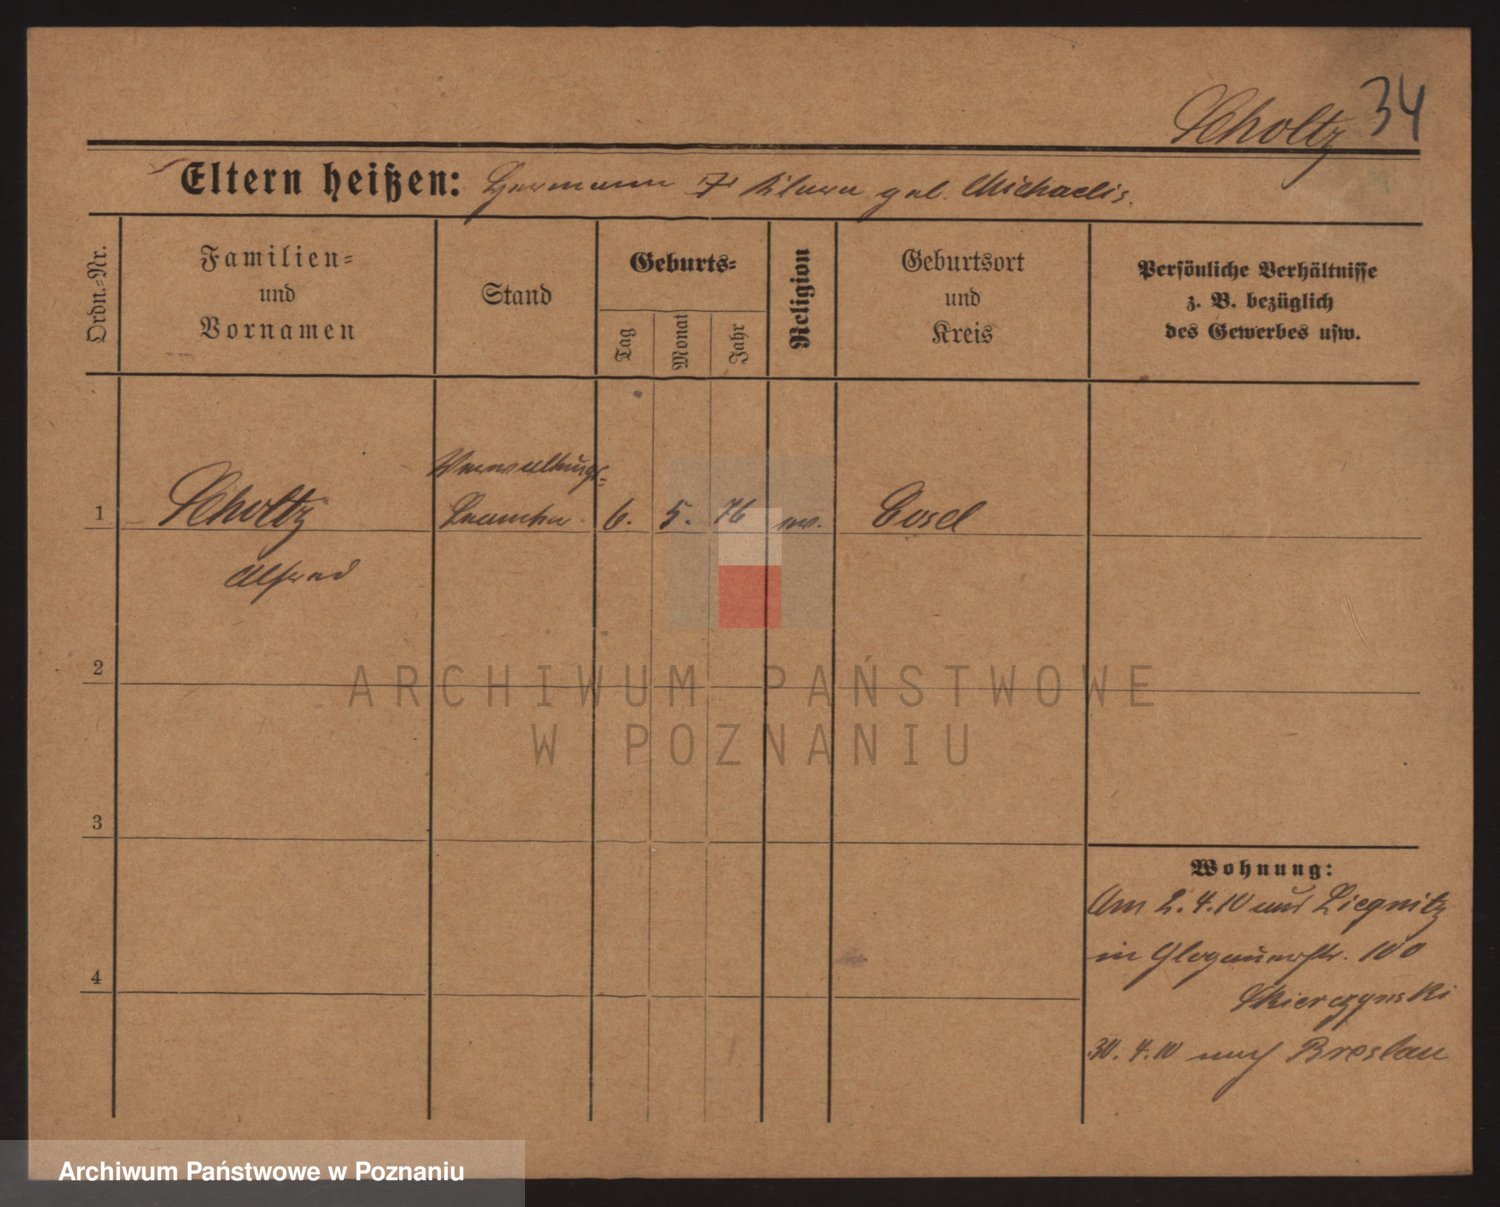 Scholtz 34
Eltern heißen: Hermann Klara geb. Michaelis.
Ordn.-Nr.
Familien-
und
Vornamen
Stand
Geburts-
Tag
Monat
Jahr
Religion
Geburtsort
und
Kreis
Persönliche Verhältnisse
z. B. bezüglich
des Gewerbes usw.
Verwaltungs-
1 Scholtz Beamter 6. 5. 76 ev. Cosel
Alfred
2
ARCHIWUM PAŃSTWOWE
W POZNANIU
3
Wohnung:
Am 2.4.10 aus Liegnitz
in Glogauerstr. 100
4
Skierczynski
30.4.10 nach Breslau
Archiwum Państwowe w Poznaniu